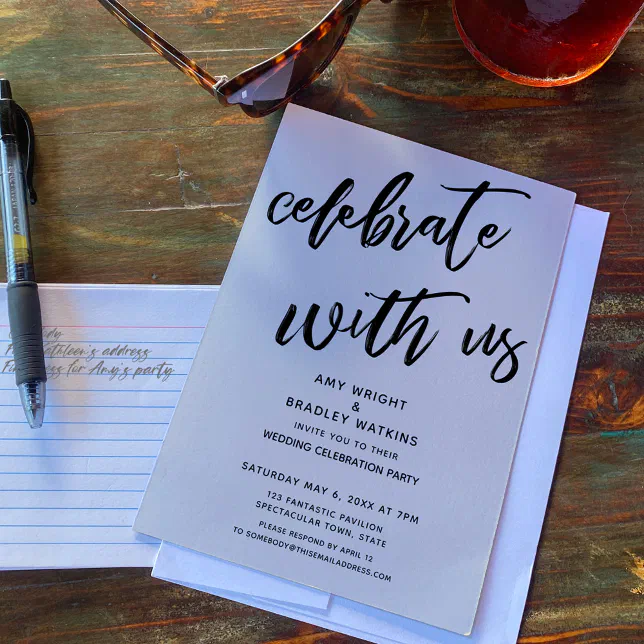 celebrate
with us
AMY WRIGHT
&
BRADLEY WATKINS
INVITE YOU TO THEIR
WEDDING CELEBRATION PARTY
SATURDAY MAY 6, 20XX AT 7PM
123 FANTASTIC PAVILION
SPECTACULAR TOWN, STATE
PLEASE RESPOND BY APRIL 12
TO SOMEBODY@THISEMAILADDRESS.COM
address
for Amy's party